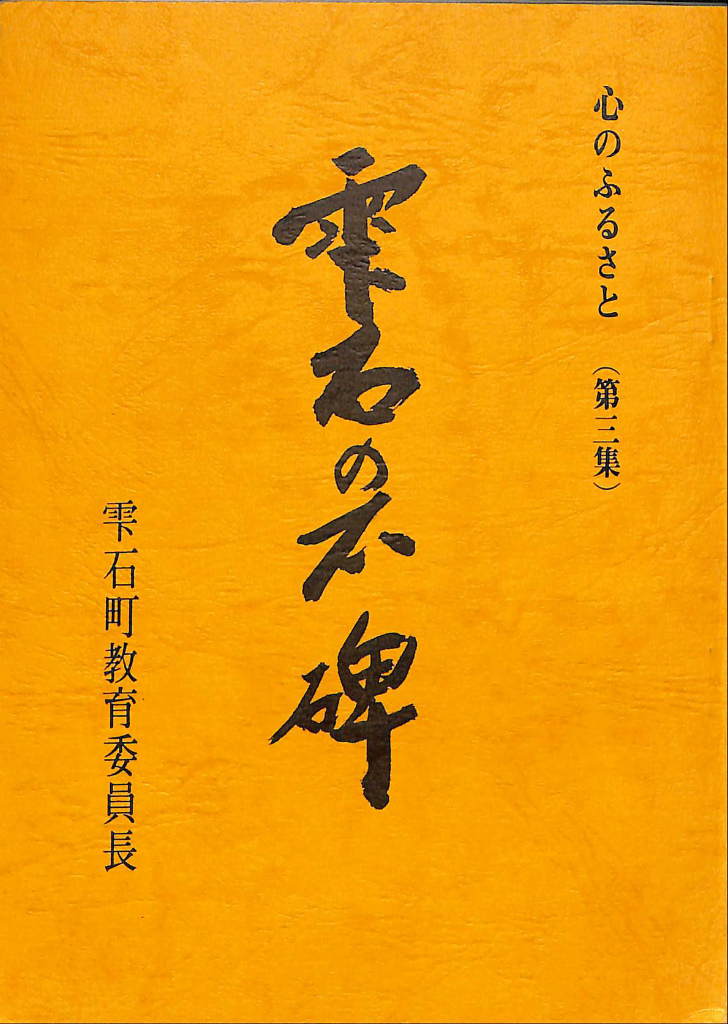 心のふるさと（第三集）
雫石の石碑
雫石町教育委員長